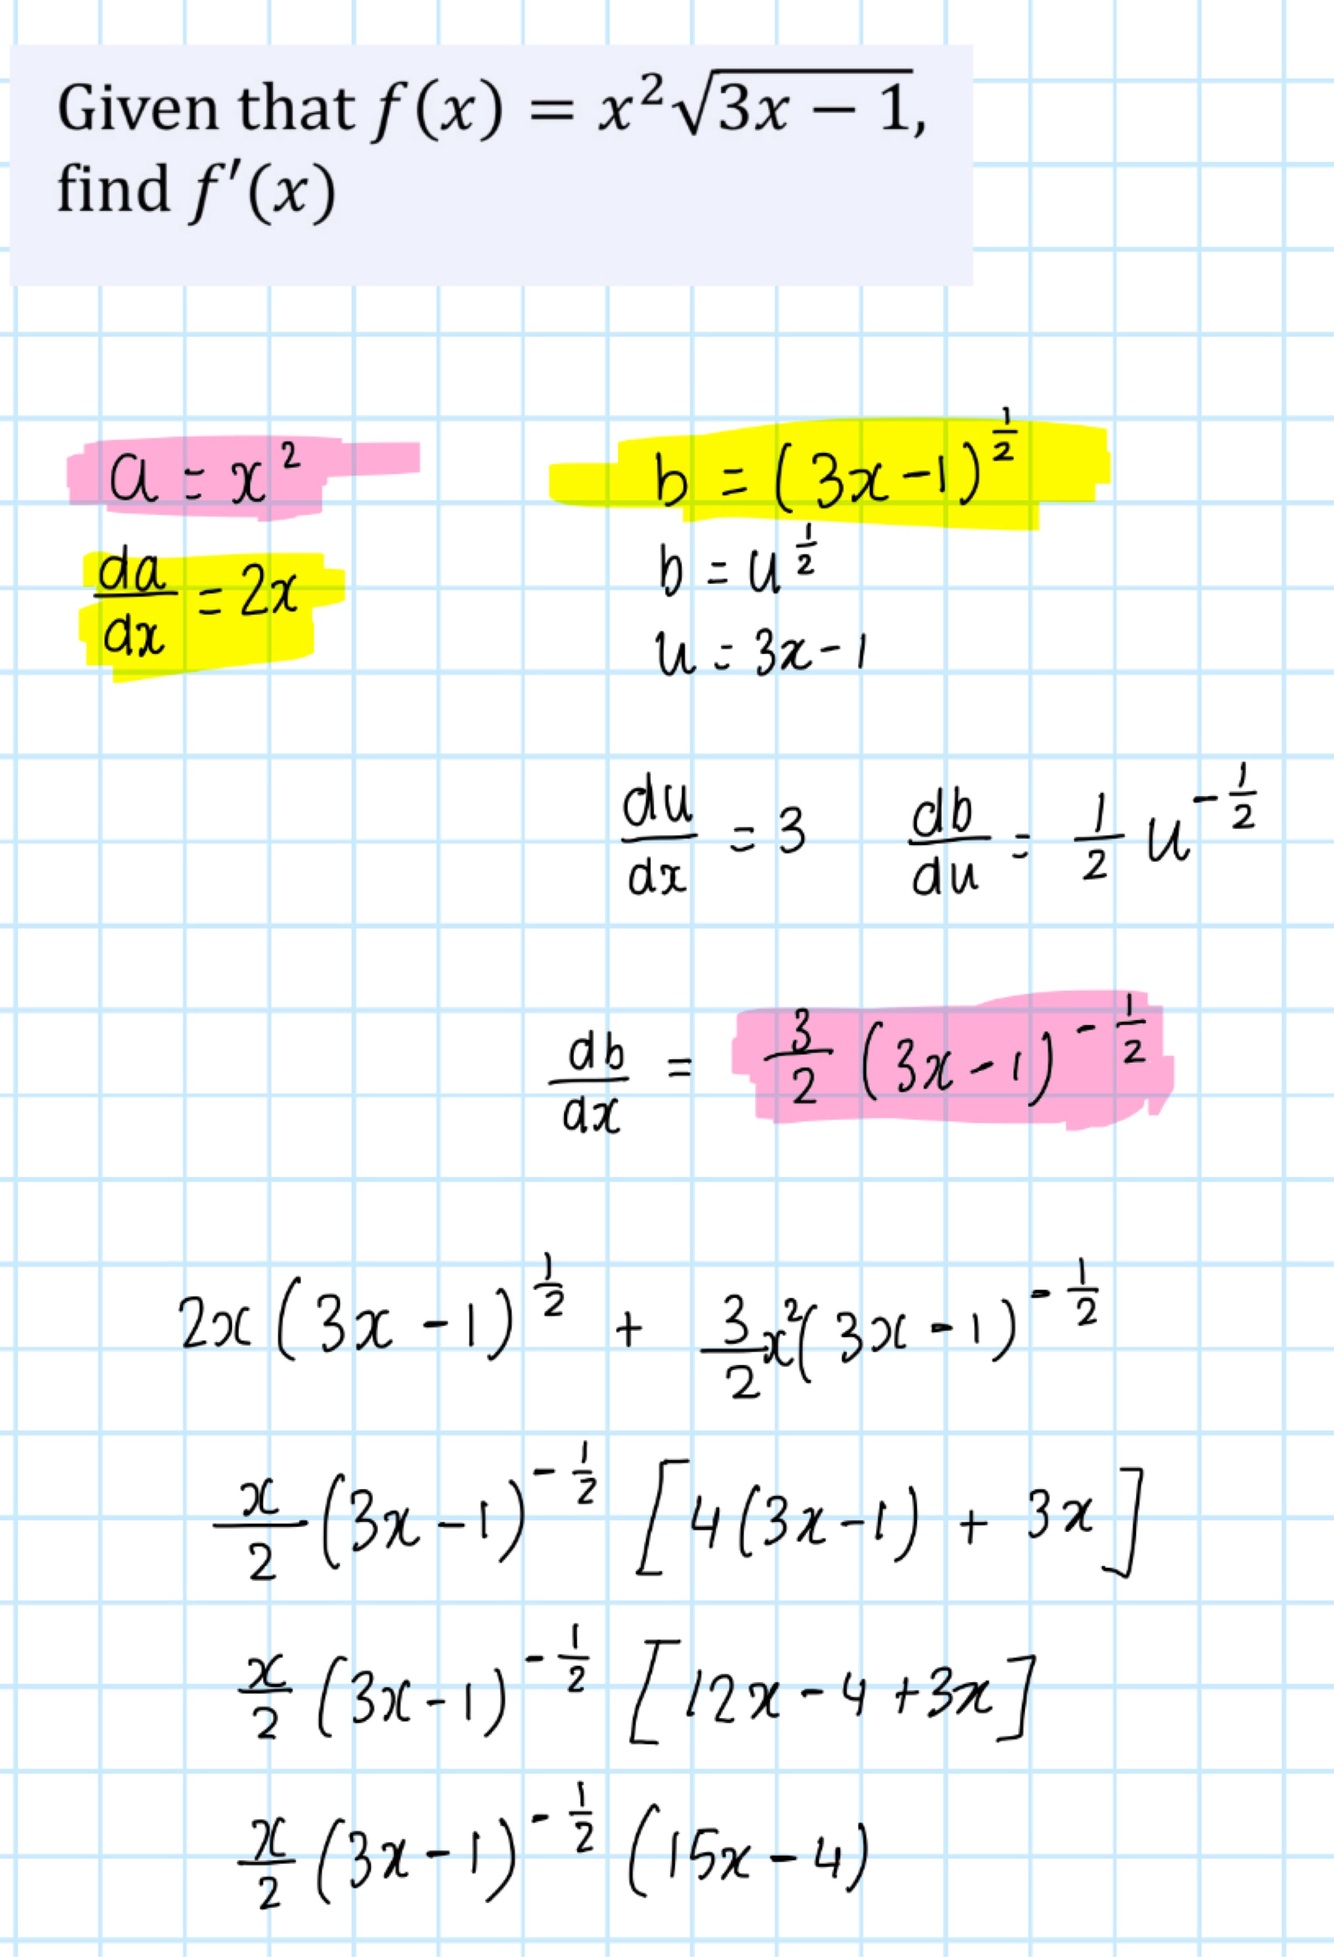 Given that f(x) = x²√(3x − 1),
find f′(x)
a = x²
b = (3x-1)^(1/2)
da/dx = 2x
b = u^(1/2)
u = 3x-1
du/dx = 3
db/du = 1/2 u^(-1/2)
db/dx = 3/2 (3x-1)^(-1/2)
2x(3x-1)^(1/2) + 3/2 x²(3x-1)^(-1/2)
x/2 (3x-1)^(-1/2) [4(3x-1) + 3x]
x/2 (3x-1)^(-1/2) [12x-4+3x]
x/2 (3x-1)^(-1/2) (15x-4)